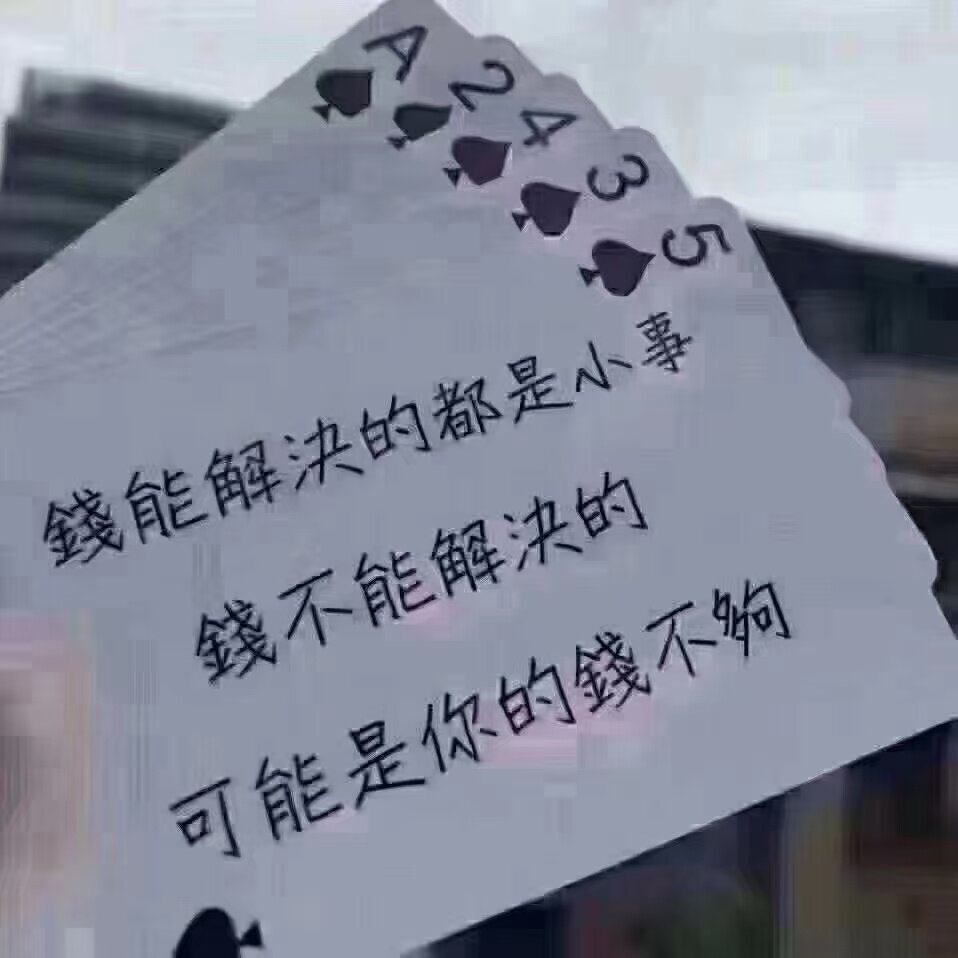 A
2
4
3
5
錢能解決的都是小事
錢不能解決的
可能是你的錢不夠